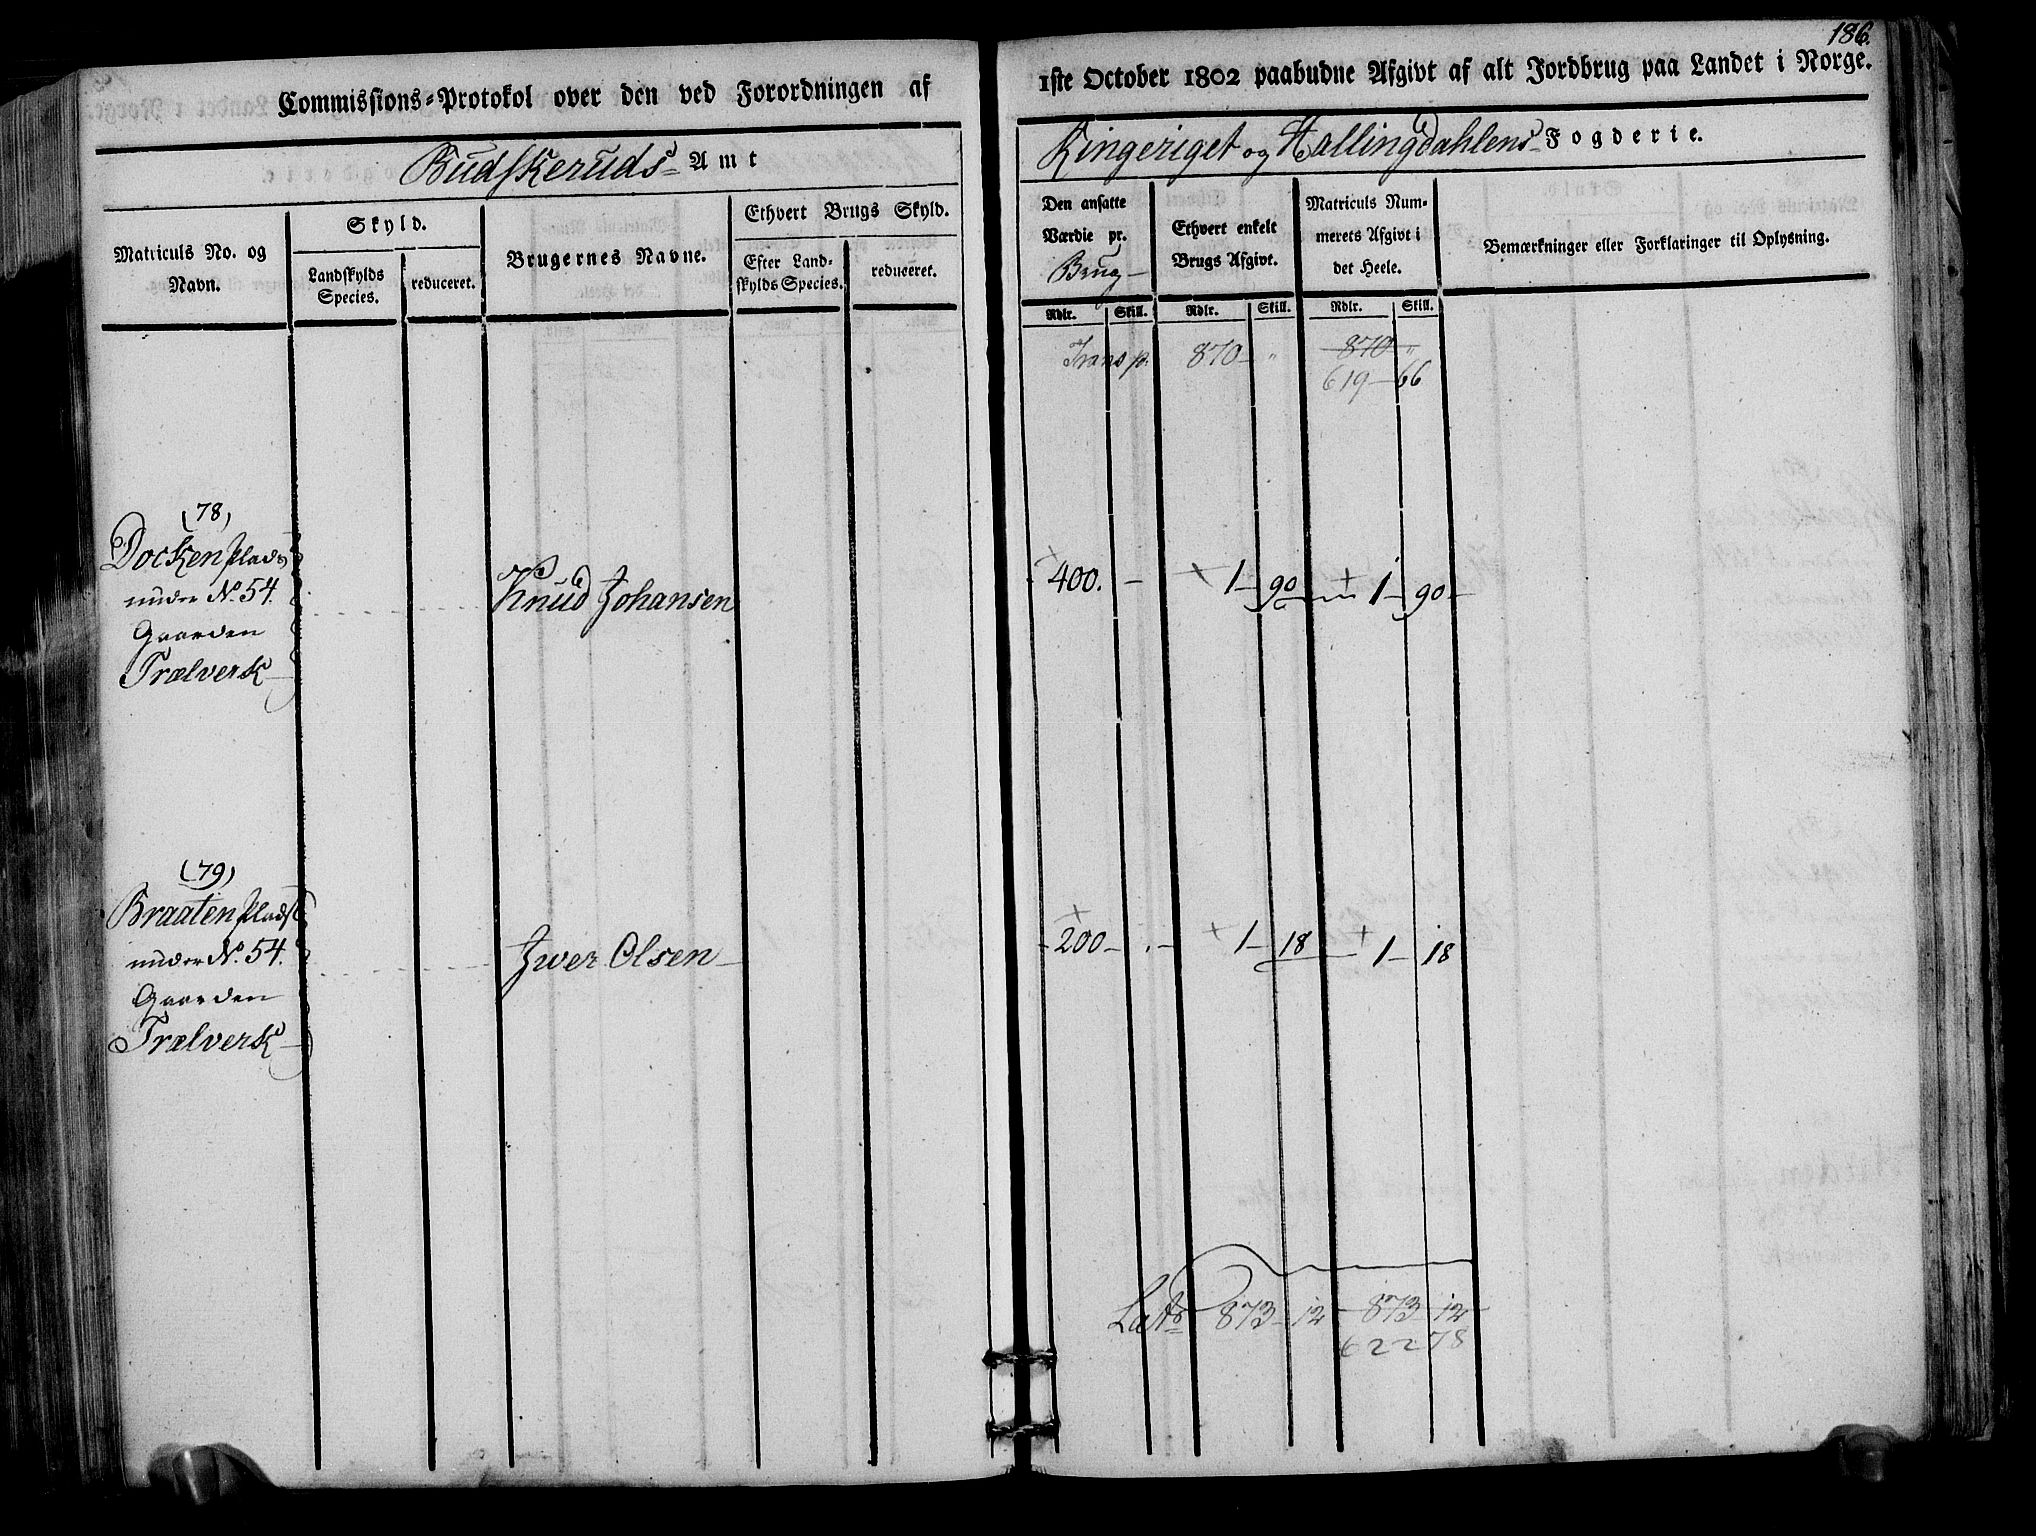 186.
Commissions-Protokol over den ved Forordningen af
1ste October 1802 paabudne Afgivt af alt Jordbrug paa Landet i Norge.
Budskeruds Amt
Ringeriget og Hallingdahlens Fogderie.
Matriculs No. og
Navn.
Skyld.
Landskylds
Species.
reduceret.
Brugernes Navne.
Ethvert Brugs Skyld.
Efter Land-
skylds Species.
reduceret.
Den ansatte
Værdie pr.
Brug
Ethvert enkelt
Brugs Afgivt.
Matriculs Num-
merets Afgivt i
det Heele.
Bemærkninger eller Forklaringer til Oplysning.
Rdlr. Skill. Rdlr. Skill. Rdlr. Skill.
Transp. 870 - " 870 "
619 - 66
(78)
Docken plads
under No. 54.
Gaarden
Trælverk
Knud Johansen
400. - 1 - 90 1 - 90 -
(79)
Braaten plads
under No. 54.
Gaarden
Trælverk
Iwer Olsen
200 - 1 - 18 1 - 18
Lats 873 - 12 873 - 12
622 78